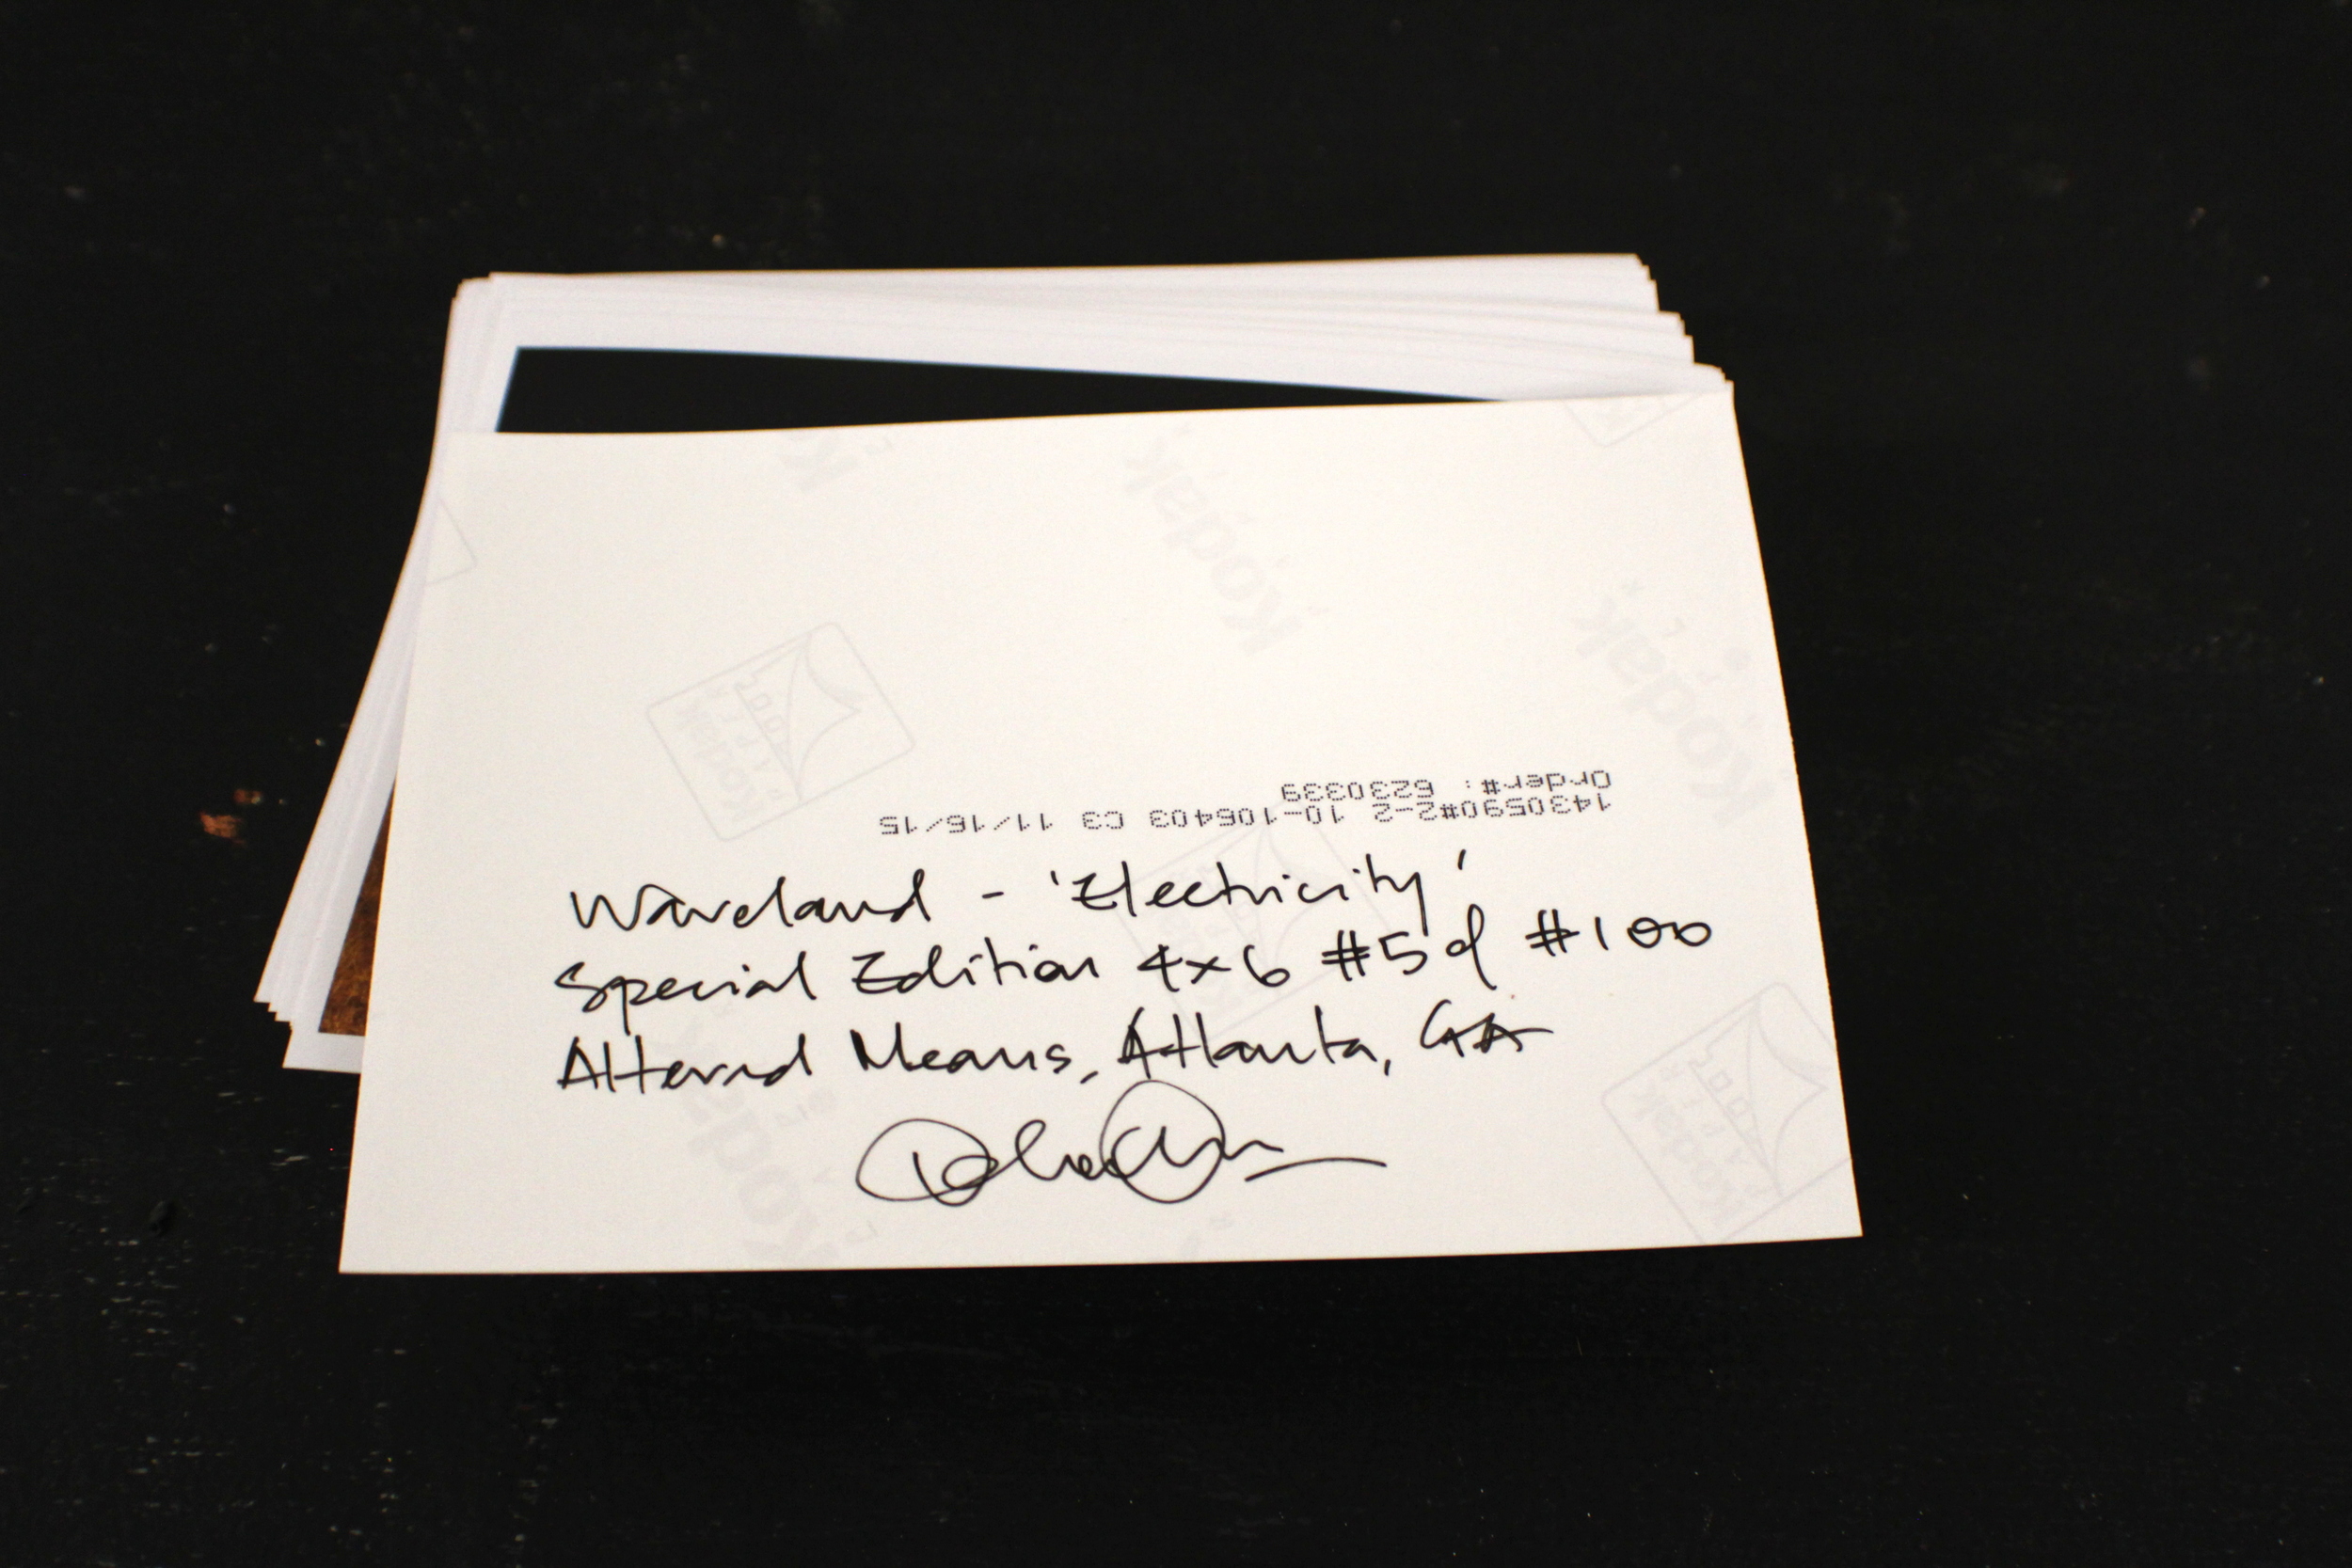 Order#: 6230339
1430590#2-2 10-106403 C3 11/16/15
Waveland - 'Electricity'
Special Edition 4x6 #5 of #100
Altered Means, Atlanta, GA
Kodak
Kodak
Kodak
Kodak
Kodak
Kodak